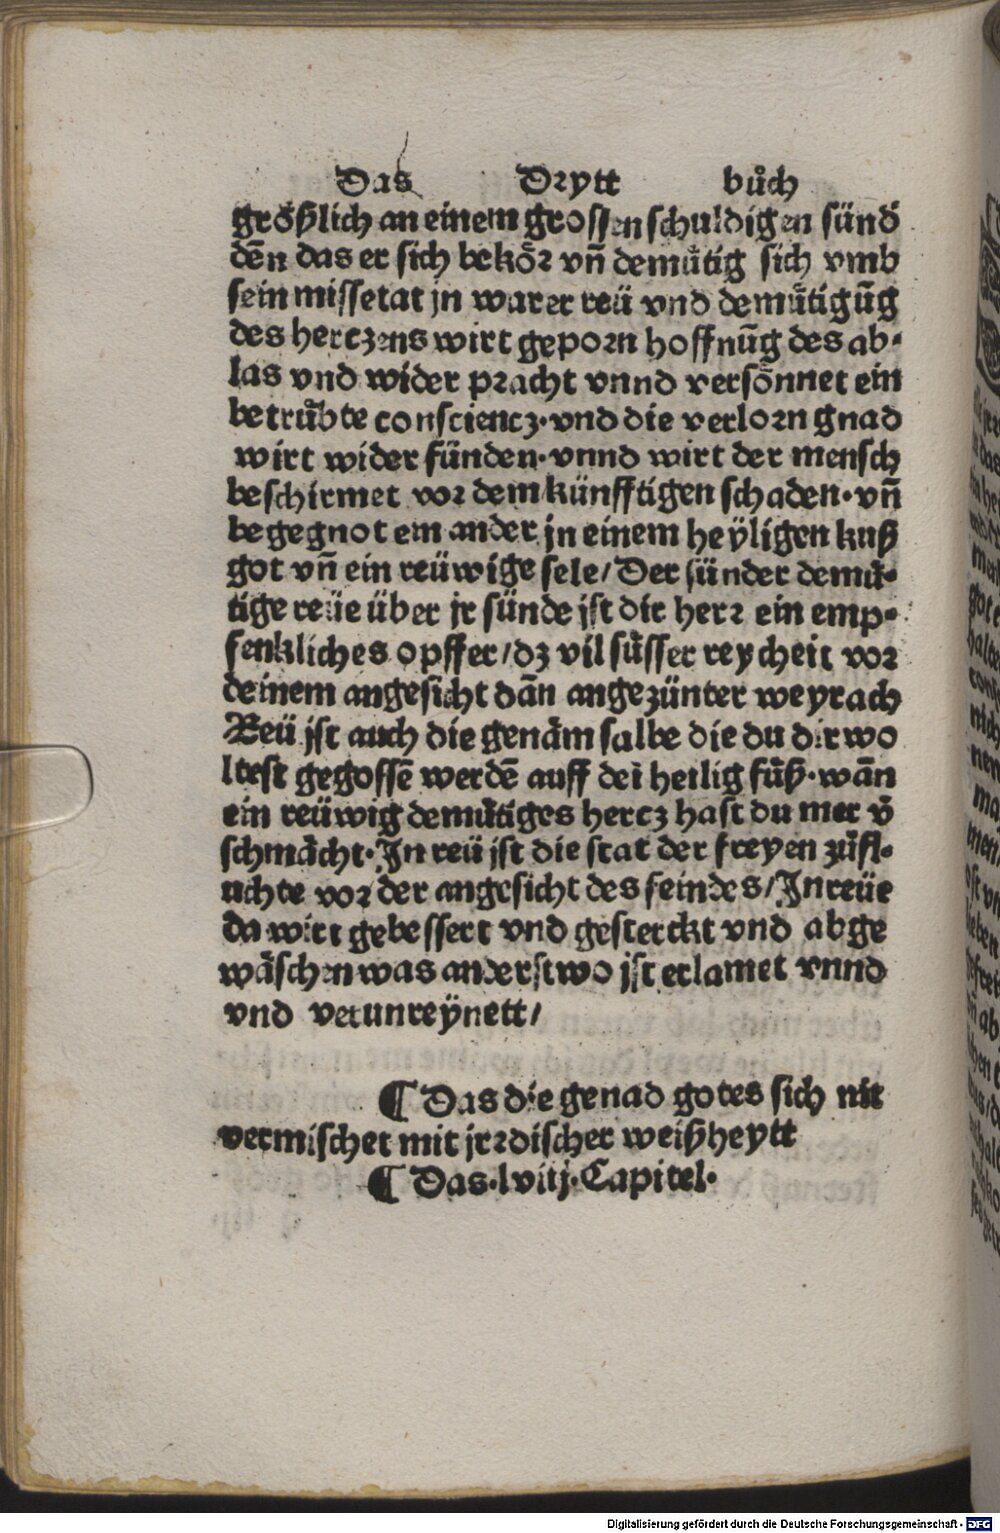 Das Drytt bůch
größlich an einem grossen schuldigen sünd
dēn das er sich bekőr vn̄ demůtig sich vmb
sein missetat jn warer reü vnd demůtigūg
des hertzens wirt geporn hoffnūg des ab-
las vnd wider pracht vnnd versőnnet ein
betrůbte conscientz·vnd die verlorn gnad
wirt wider fünden·vnnd wirt der mensch
beschirmet vor dem künfftigen schaden·vn̄
begegnot ein ander jn einem heÿligen kuß
got vn̄ ein reüwige sele/Der sünder demů-
tige reüe über jr sünde jst dir herr ein emp-
fenkliches opffer/dz vil sůsser reycheit vor
deinem angesicht dān angezünter weyrach
Reü jst auch die genām salbe die du dir wo
ltest gegossē werdē auff dei heilig fůß·wān
ein reüwig demůtiges hertz hast du mer v̄
schmächt·Jn reü jst die stat der freyen zůfl-
uchte vor der angesicht des feindes/Jn reüe
da wirt gebessert vnd gesterckt vnd abge
wäschen was anderstwo jst erlamet vnnd
vnd verunreÿnett/
¶ Das die genad gotes sich nit
vermischet mit jrrdischer weißheytt
¶ Das·lviij·Capitel·
Digitalisierung gefördert durch die Deutsche Forschungsgemeinschaft - DFG